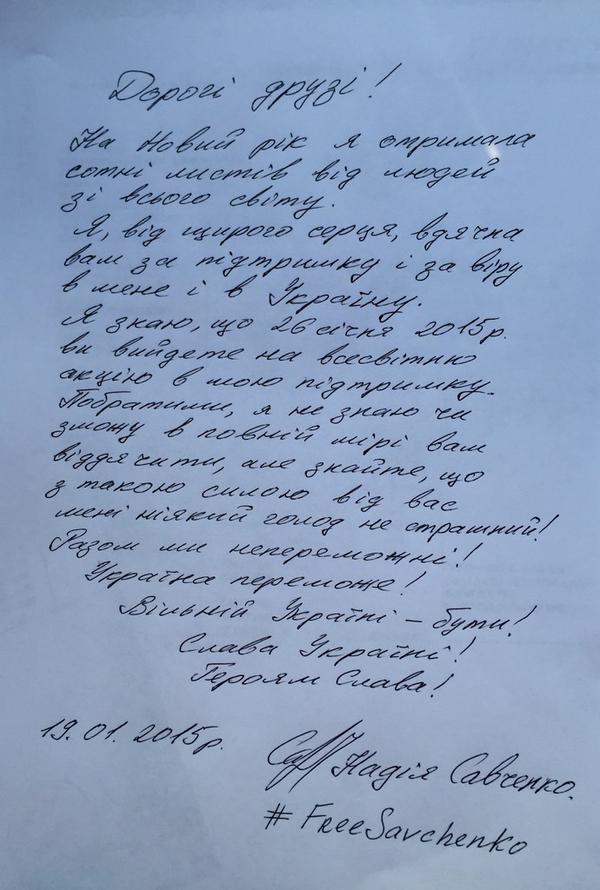 Дорогі друзі!
На Новий рік я отримала
сотні листів від людей
зі всього світу.
Я, від щирого серця, вдячна
вам за підтримку і за віру
в мене і в Україну.
Я знаю, що 26 січня 2015р.
ви вийдете на всесвітню
акцію в мою підтримку.
Побратими, я не знаю чи
зможу в повній мірі вам
віддячити, але знайте, що
з такою силою від вас
мені ніякий голод не страшний!
Разом ми непереможні!
Україна переможе!
Вільній Україні – бути!
Слава Україні!
Героям Слава!
19.01.2015р.
Надія Савченко.
#FreeSavchenko